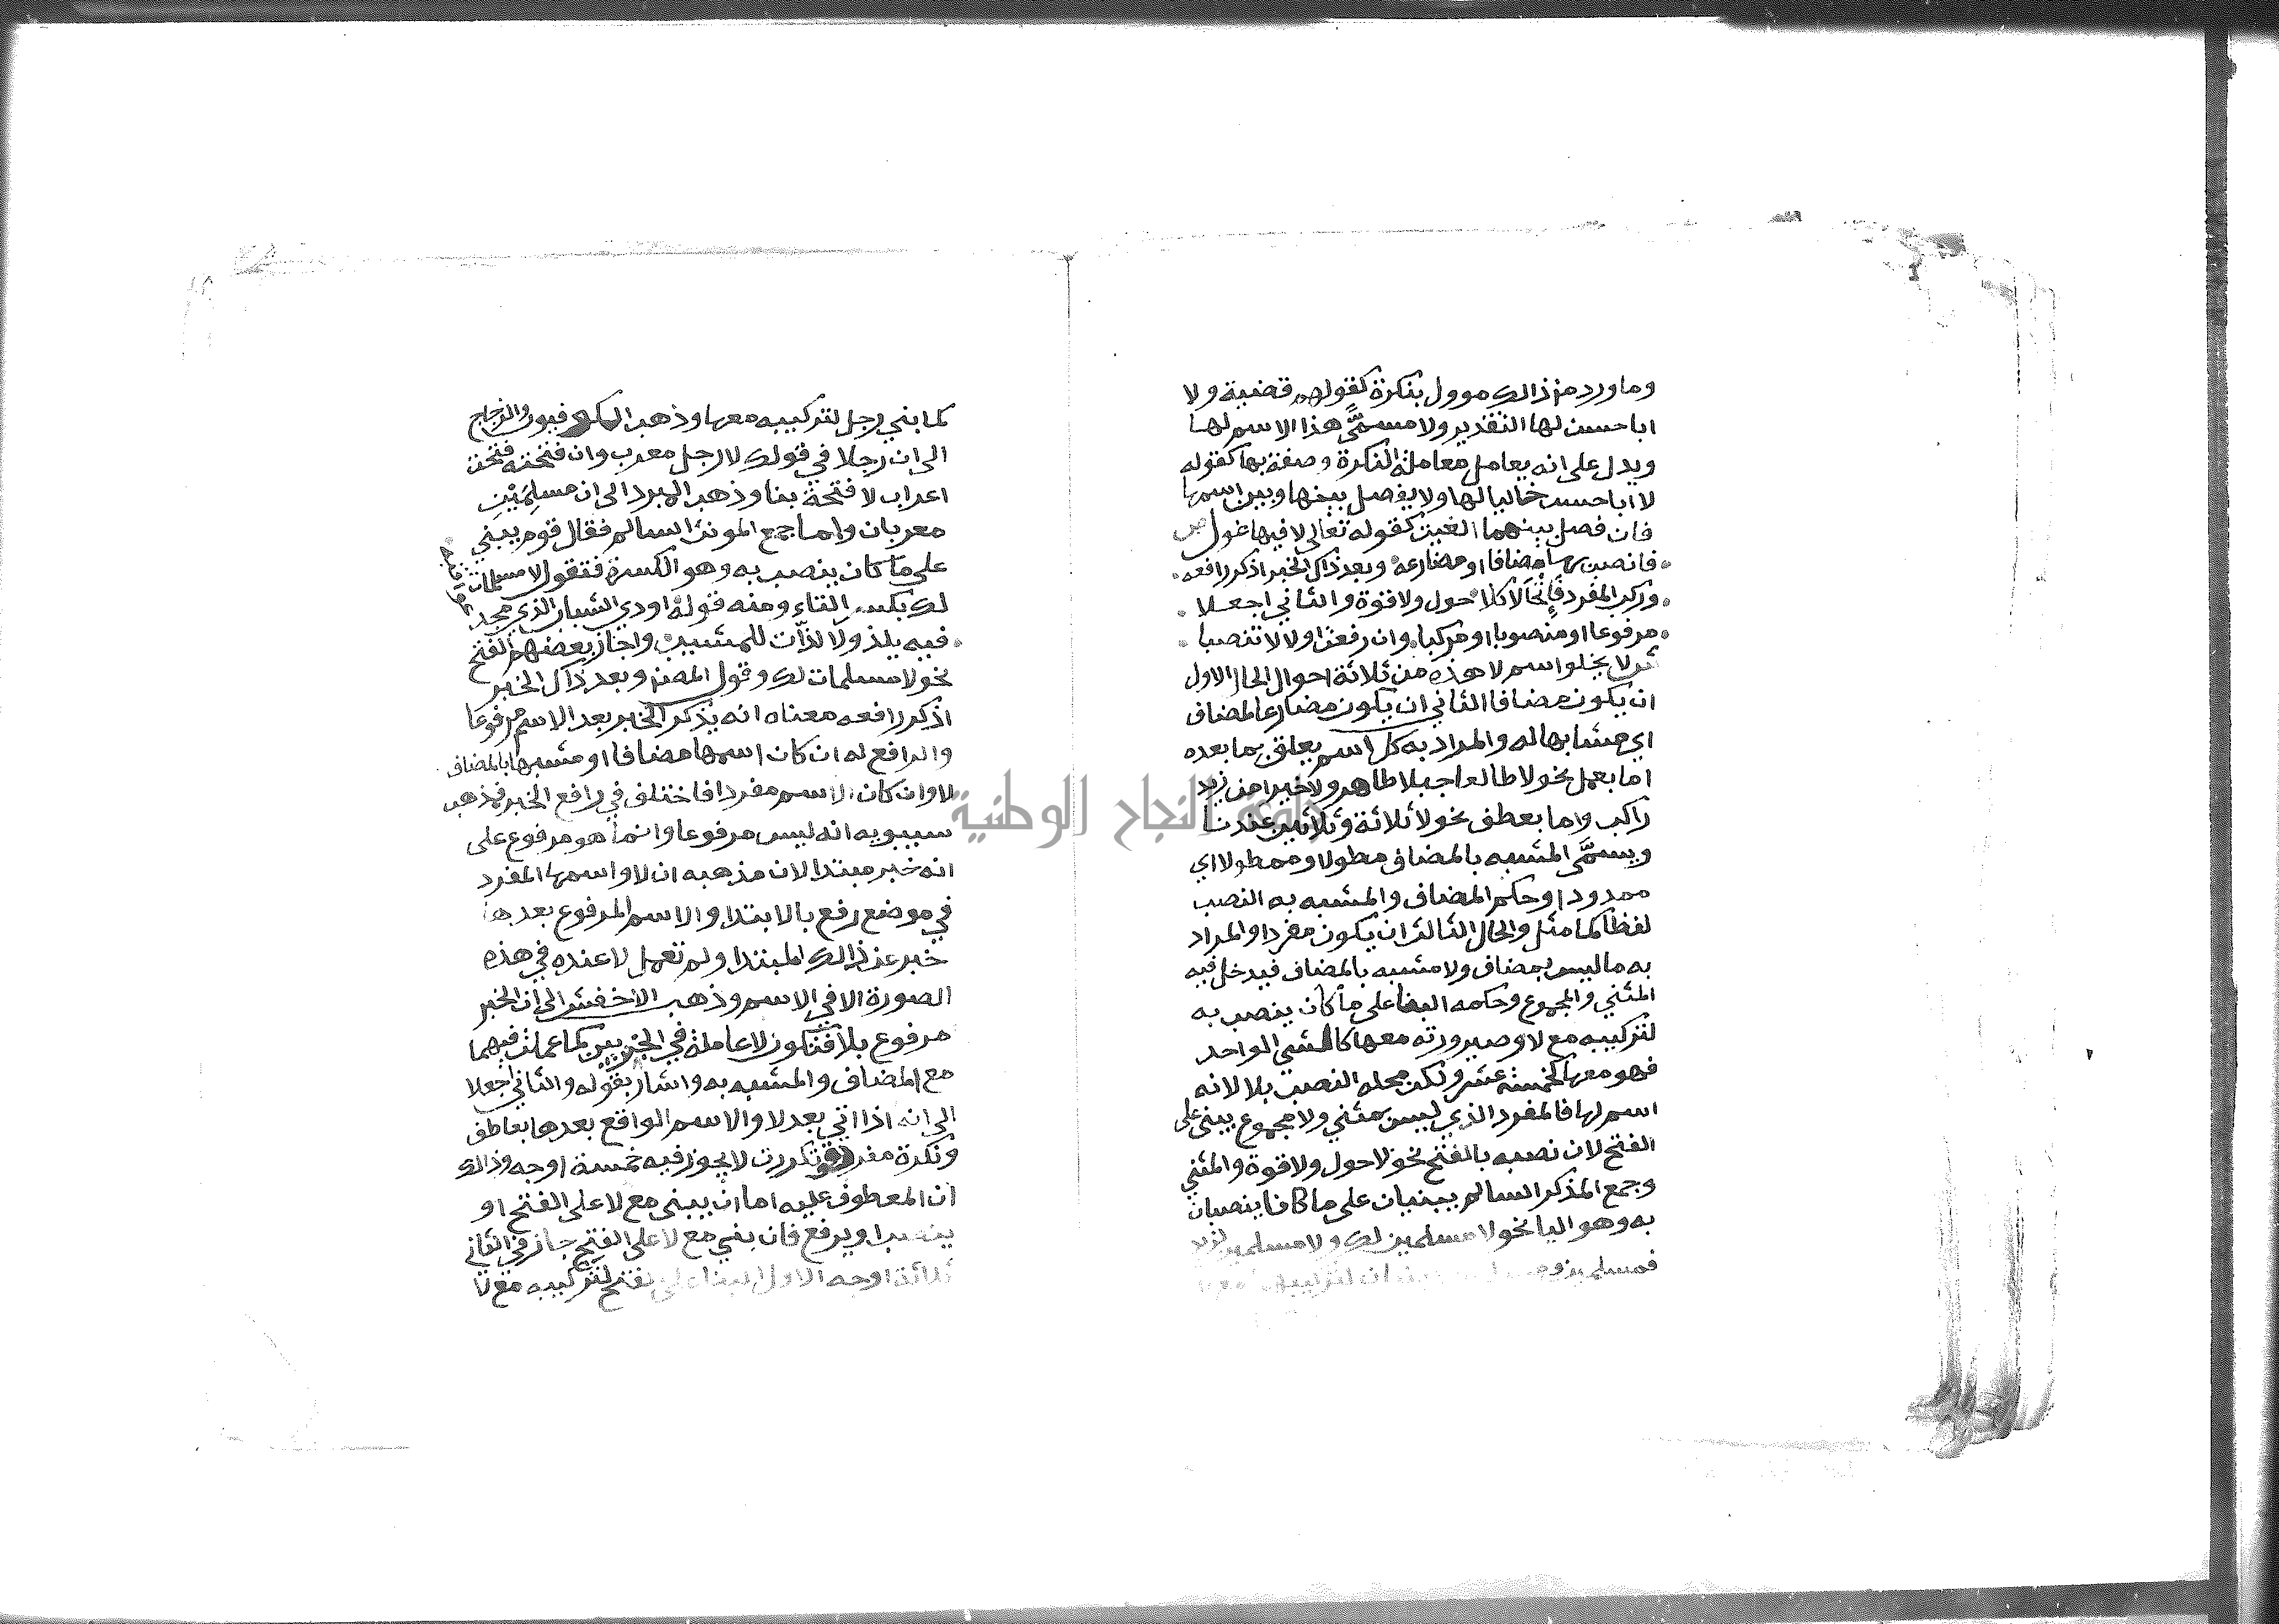 وما ورد من ذالك موول بنكرة كقولهم قضية ولا
ابا حسن لها التقدير ولا مسمَّى هذا الاسم لها
ويدل على انه يعامل معاملة النكرة وصفة بها كقوله
لا ابا حسن خاليا لها ولا يفصل بينها وبين اسمها
فان فصل بينهما الغيت كقوله تعالى لا فيها غول ص
فانصب بها مضافا او مضارعه وبعد ذاك الخبر اذكر رافعه
وركب المفرد فاتحا كلا حول ولا قوة والثاني اجعلا
مرفوعا او منصوبا او مركبا وان رفعت اولا لا تنصبا
ش لا يخلوا اسم لا هذه من ثلاثة احوال الحال الاول
ان يكون مضافا الثاني ان يكون مضارعا للمضاف
اي مشابها له والمراد به كل اسم يعلق بما بعده
اما بعمل نحو لا طالعا جبلا ظاهر ولا خيرا من زيد
راكب واما بعطف نحو لا ثلاثة وثلاثين عندنا
ويسمَّى المشبه بالمضاف مطولا وممطولا اي
ممدودا وحكم المضاف والمشبه به النصب
لفظا كما مثل والحال الثالث ان يكون مفردا والمراد
به ما ليس بمضاف ولا مشبه بالمضاف فيدخل فيه
المثني والمجموع وحكمه البنا على ما كان ينصب به
لتركيبه مع لا وصيرورته معها كالشي الواحد
فهو معها كخمسة عشر ولكن محله النصب بلا لانه
اسم لها فالمفرد الذي ليس بمثني ولا مجموع يبنى على
الفتح لان نصبه بالفتح نحو لا حول ولا قوة والمثني
وجمع المذكر السالم يبنيان على ما كانا ينصبان
به وهو اليا نحو لا مسلمين لك ولا مسلمين لزيد
فمسلمين يبنيان لتركيبهما مع لا
كما بني رجل لتركيبه معها وذهب الكوفيون والزجاج
الى ان رجلا في قولك لا رجل معرب وان فتحته فتحة
اعراب لا فتحة بنا وذهب المبرد الى ان مسلِمَيْنِ
معربان واما جمع المونث السالم فقال قوم يبني
على ما كان ينصب به وهو الكسرة فتقول لا مسلمات
لك بكسر التاء ومنه قوله اودي الشباب الذي مجد
فيه يلذ ولا لذّات للمشيب واجاز بعضهم الفتح
نحو لا مسلمات لك وقول المصنف وبعد ذاك الخبر
اذكر رافعه معناه انه يذكر الخبر بعد الاسم مرفوعا
والرافع له ان كان اسمها مضافا او مشبها بالمضاف
لا وان كان الاسم مفردا فاختلف في رافع الخبر فذهب
سيبويه انه ليس مرفوعا وانما هو مرفوع على
انه خبر مبتدا لان مذهبه ان لا واسمها المفرد
في موضع رفع بالابتدا والاسم المرفوع بعدها
خبر عن ذالك المبتدا ولم تعمل لا عنده في هذه
الصورة الا في الاسم وذهب الاخفش الى ان الخبر
مرفوع بلا فتكون لا عاملة في الجزيين كما عملت فيهما
مع المضاف والمشبه به واشار بقوله والثاني اجعلا
الى انه اذا اتي بعد لا والاسم الواقع بعدها بعاطف
ونكرة مفردة وتكررت لا يجوز فيه خمسة اوجه وذالك
ان المعطوف عليه اما ان يبنى مع لا على الفتح او
ينصب او يرفع فان بني مع لا على الفتح جاز في الثاني
ثلاثة اوجه الاول البناء على الفتح لتركيبه مع لا
جامعة النجاح الوطنية